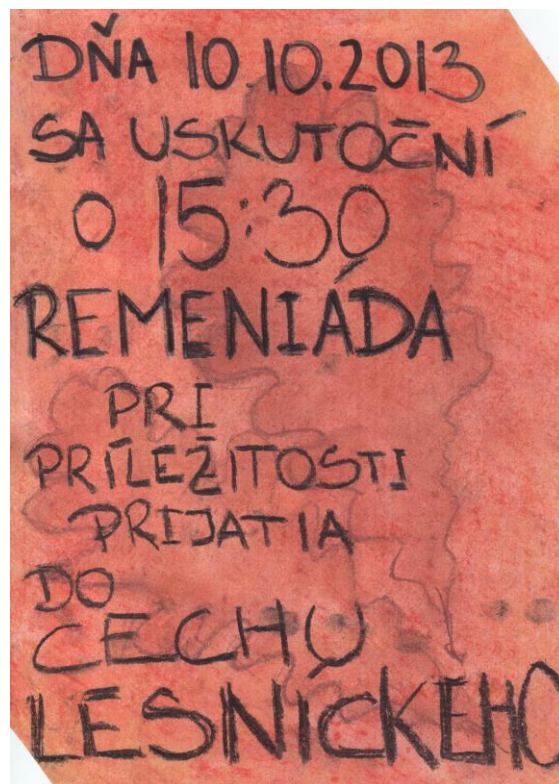 DŇA 10.10.2013
SA USKUTOČNÍ
O 15:30
REMENIÁDA
PRI
PRÍLEŽITOSTI
PRIJATIA
DO
CECHU
LESNÍCKEHO